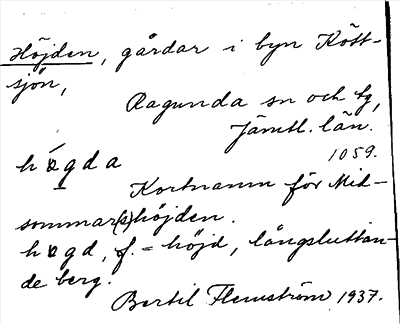 Höjden, gårdar i byn Kött-
sjön,
Ragunda sn och tg,
Jämtl. län.
1059.
högda
Kortnamn för Mid-
sommar(s)höjden.
høgd, f. = höjd, långsluttan-
de berg.
Bertil Flemström 1937.